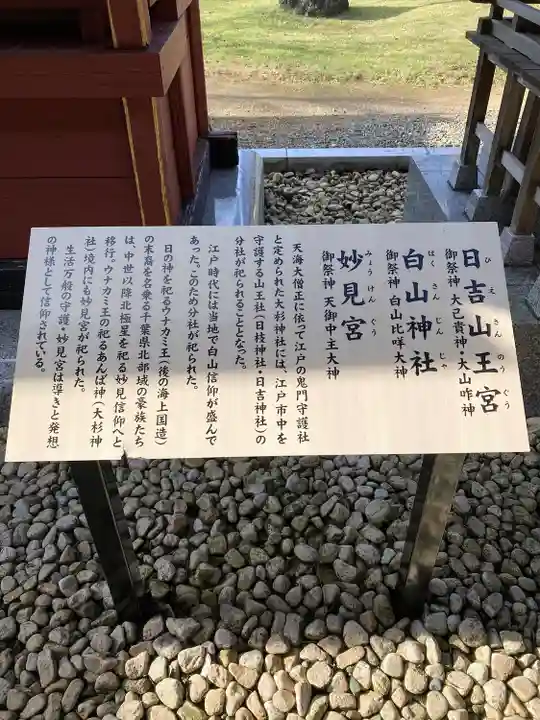 日吉山王宮
ひえさんのうぐう
御祭神 大己貴神・大山咋神
白山神社
はくさんじんじゃ
御祭神 白山比咩大神
妙見宮
みょうけんぐう
御祭神 天御中主大神
天海大僧正に依って江戸の鬼門守護社
と定められた大杉神社には、江戸市中を
守護する山王社（日枝神社・日吉神社）の
分社が祀られることとなった。
江戸時代には当地で白山信仰が盛んで
あった。このため分社が祀られた。
日の神を祀るウナカミ王（後の海上国造）
の末裔を名乗る千葉県北部域の豪族たち
は、中世以降北極星を祀る妙見信仰へと
移行。ウナカミ王の祀るあんば神（大杉神
社）境内にも妙見宮が祀られた。
生活万般の守護・妙見宮は導きと発想
の神様として信仰されている。